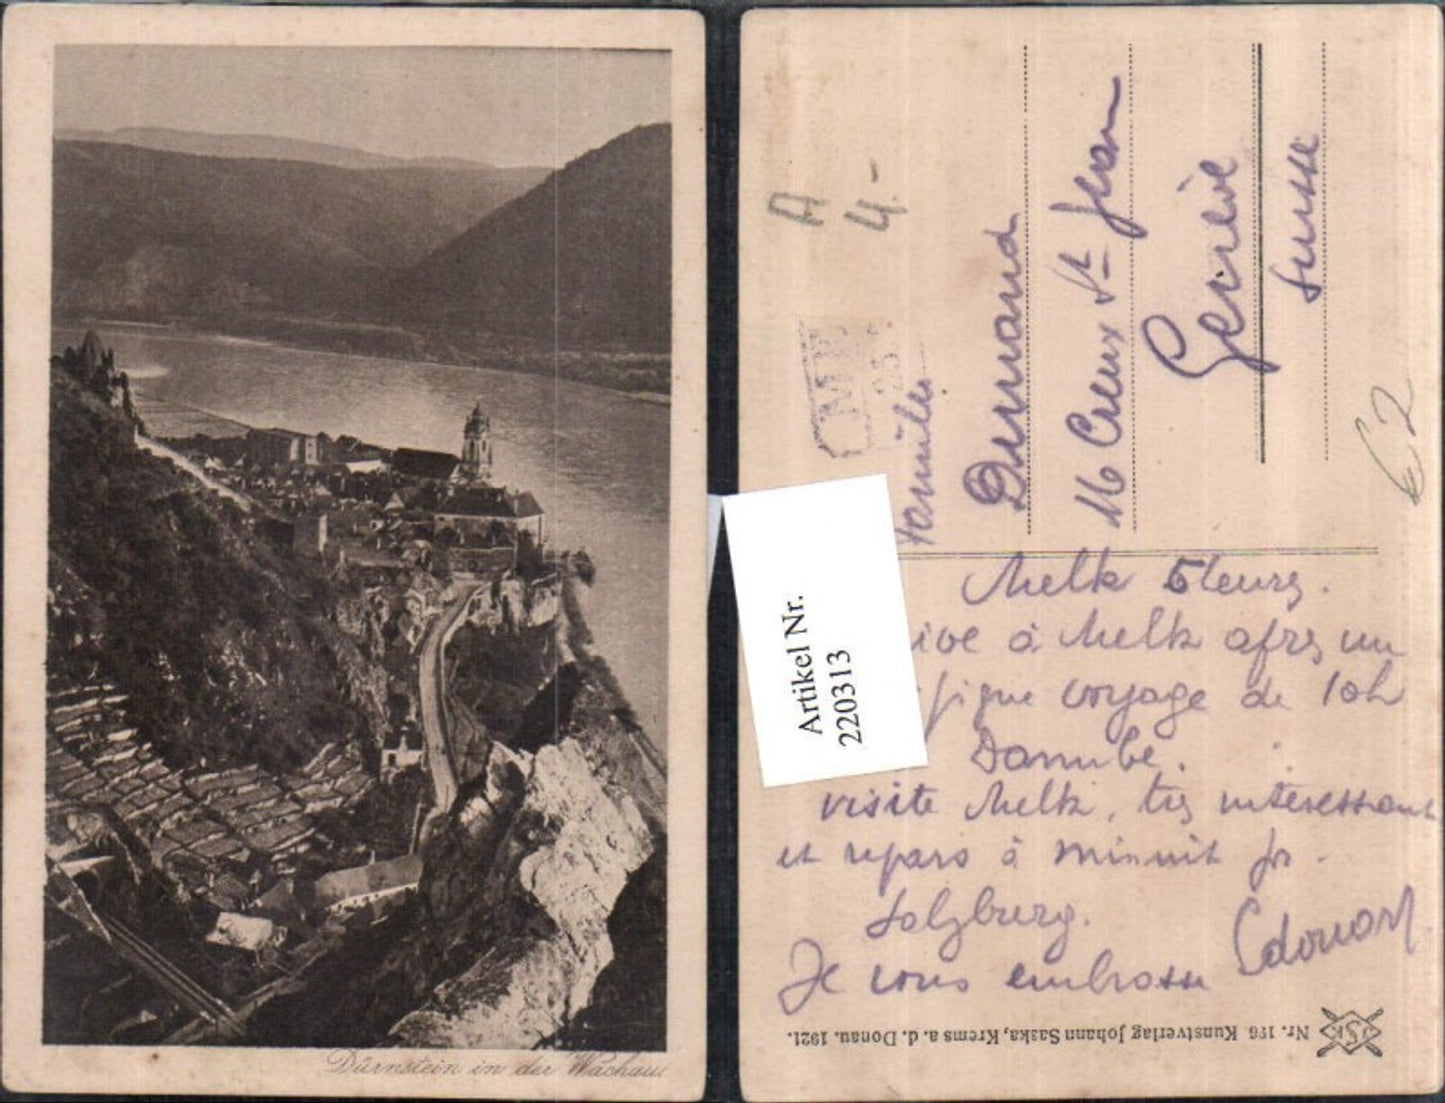 Dürnstein in der Wachau
A
4.-
Famille
Durrand
16 Creux St Jean
Genève
Suisse
€ 2
Artikel Nr.
220313
Melk 5 heures.
à Melk après un
voyage de 10h
Danube.
visite Melk, très intéressant
et repars à minuit pr
Salzburg.
Je vous embrasse Edouard
Nr. 196 Kunstverlag Johann Saska, Krems a. d. Donau. 1921.
JSK